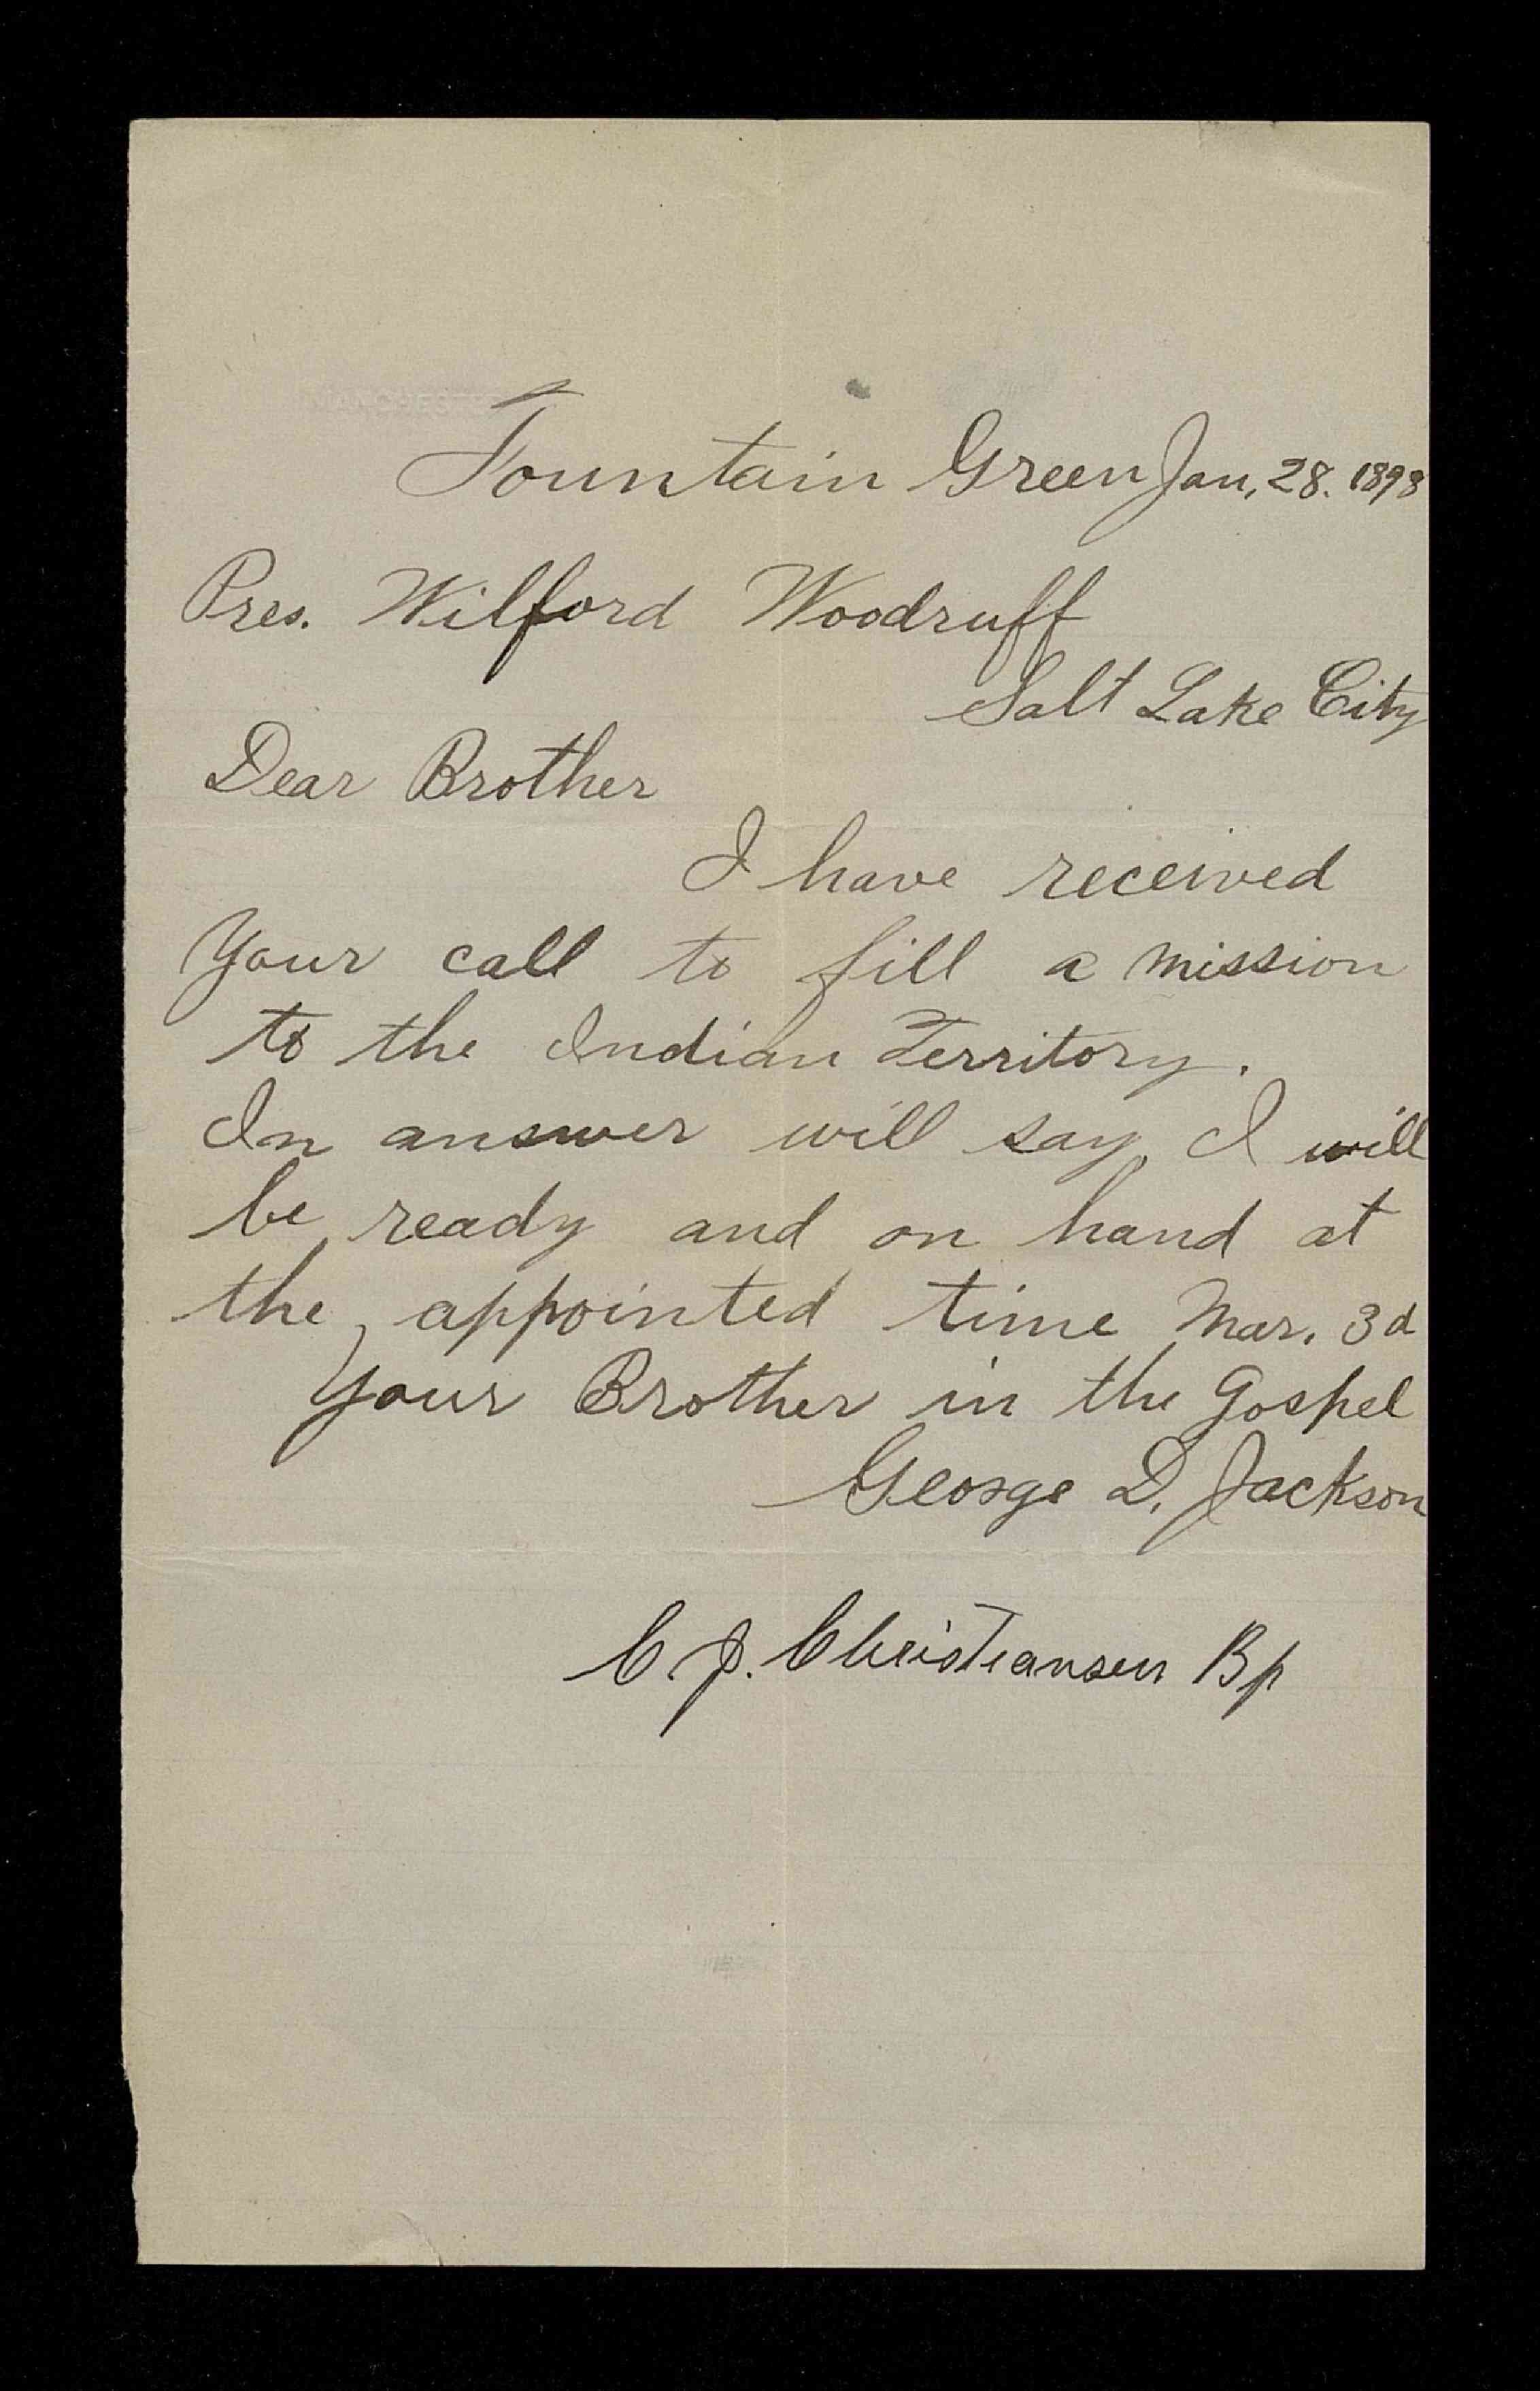 Fountain Green Jan, 28. 1898
Pres. Wilford Woodruff
Salt Lake City
Dear Brother
I have received
Your call to fill a mission
to the Indian Territory.
In answer will say, I will
be ready and on hand at
the appointed time Mar. 3d
Your Brother in the Gospel
George D. Jackson
C. J. Christiansen Bp